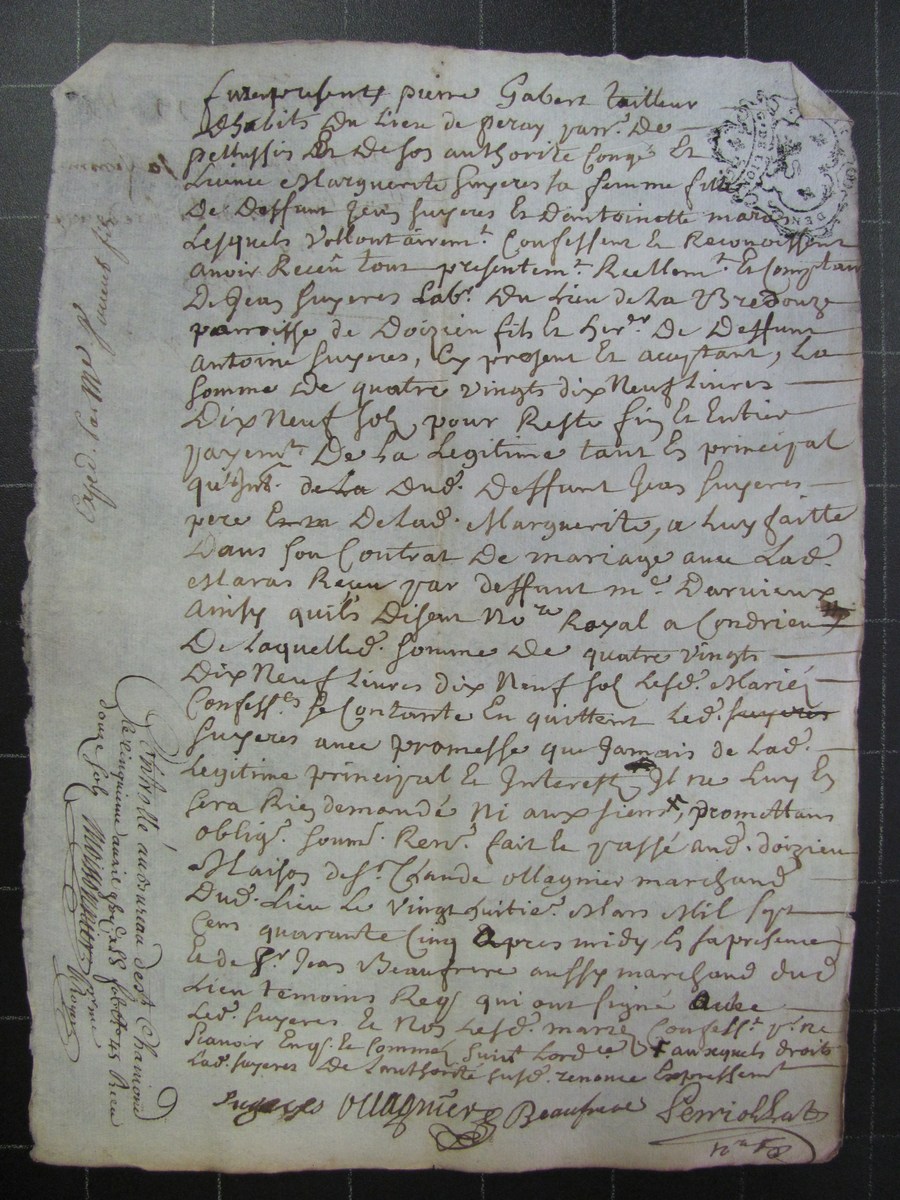 furent presents pierre Gabert tailleur
dhabits du Lieu de peray parr.e De
pellussin Et De son authorité Congé Et
Licence Marguerite Suyeres sa femme fille
De Deffunt Jean Suyeres Et Dantoinette maras
Lesquels Vollontairem.t Confessent Et Reconoissent
avoir Receu tout presentem.t Reellem.t Et Comptant
De Jean Suyeres Lab.r Du Lieu de La Bredouze
parroisse de Doizieu fils Et her.er De Deffunt
Antoine Suyeres, Cy present Et acceptant, La
somme De quatre vingts dix Neuf Livres
Dix Neuf sols pour Reste fin Et Entier
payem.t De La Legitime tant En principal
qu'Int. de La Dud. Deffunt Jean Suyeres
pere De Lad. Marguerite, a Luy faitte
Dans son Contrat De mariage avec Lad.
Maras Receu par deffunt m.e Dervieux
ainsy quils Disent No.re Royal a Condrieu
De Laquelle d. somme De quatre vingts
Dix Neuf Livres dix Neuf sols Lesd. Mariés
Confess.es se Contante En quittent Led. Suyeres
Suyeres avec promesse que Jamais de Lad.
Legitime principal Et Interest Il ne Luy En
sera Rien demandé Ni aux siens +, promettans
oblig.s soum. Ren. fait Et passé aud. doizieu
Maison de S.r Claude Ollagnier marchand
Dud. Lieu Le Vingt huitie. Mars Mil sept
Cens quarante Cinq apres midy En sa presence
Et de S.r Jean Beaufrere aussy marchand dud
Lieu temoins Req.s qui ont signé avec
Led. Suyeres Et Non Lesd. mariés Confess.t p.r ne
Scavoir Enq.s Et Sommés Suiv.t Lord.ce + auxquels droits
Lad. Suyeres De Lauthorité susd. renonce Expressem.t
Suyeres Ollagnier Beaufrere
Controllé au bureau de st Chamond
le cinquieme avril
douze sols